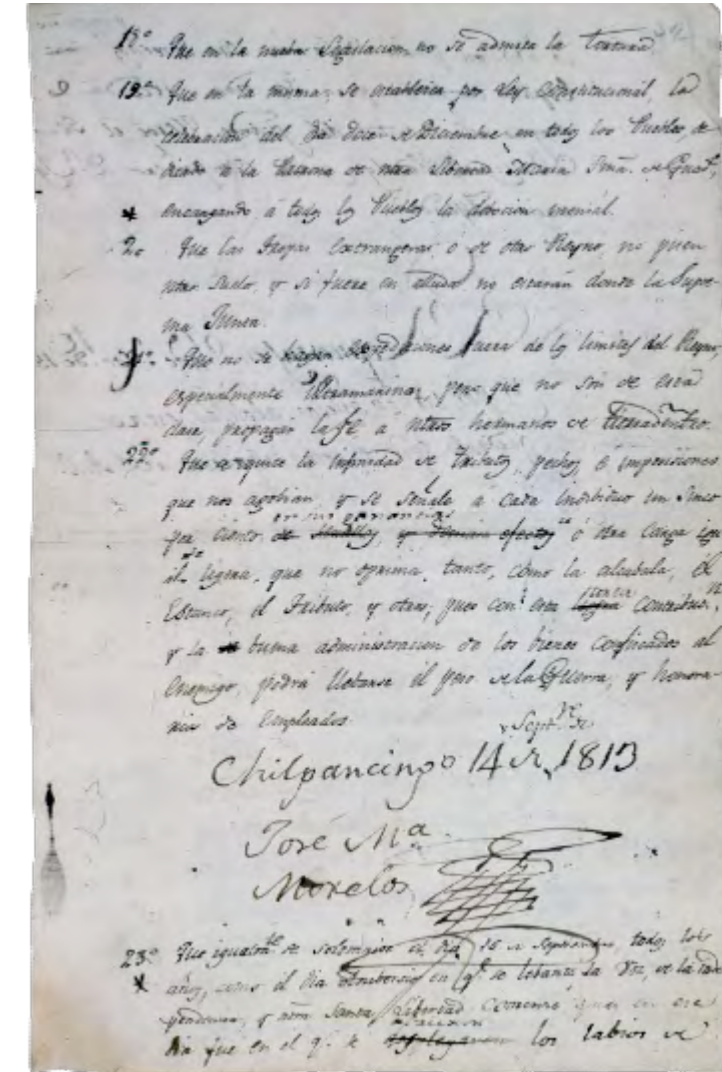 18º Que en la nueba Legislacion no se admita la Tortura
19º Que en la misma se establesca por Ley Constitucional, la
celebracion del dia doce de Diciembre en todos los Pueblos, de
dicado à la Patrona de ntra Libertad Maria Sma. de Guadᵉ.
encargando à todos los Pueblos la debocion mensual.
20 Que las tropas extrangeras o de otro Reyno, no pisen
ntro Suelo, y si fuere en alluda no estarán donde la Supre-
ma Junta.
21º Que no se hagan expediciones fuera de los limites del Reyno,
especialmente Ultramarinas, pero que no son de esta
clase, propagar la fe à ntros hermanos de tierradentro.
22º Que se quite la infinidad de tributos, pechos è imposiciones
que nos agobian, y se señale a cada individuo un Sinco
por Ciento en sus ganancias de semillas, y demas efectos ù otra carga igu
al de ligera, que no oprima tanto, como la alcabala, el
Estanco, el Tributo, y otros; pues con esta ligera contribucⁿ,
y la buena administracion de los bienes confiscados al
Enemigo, podrá llebarse el peso de la Guerra, y honora-
rios de Empleados.
Chilpancingo 14 de Septᵉ de 1813
José Mª
Morelos
23º Que igualmᵗᵉ se solemnise el dia 16 de Septiembre, todos los
años, como el dia Anibersario en q.ᵉ se lebantò la Vòz, de la Inde
pendencia, y ntra Santa Libertad Comensó, pues en ese
dia fue en el q. se desplegaron los labios de